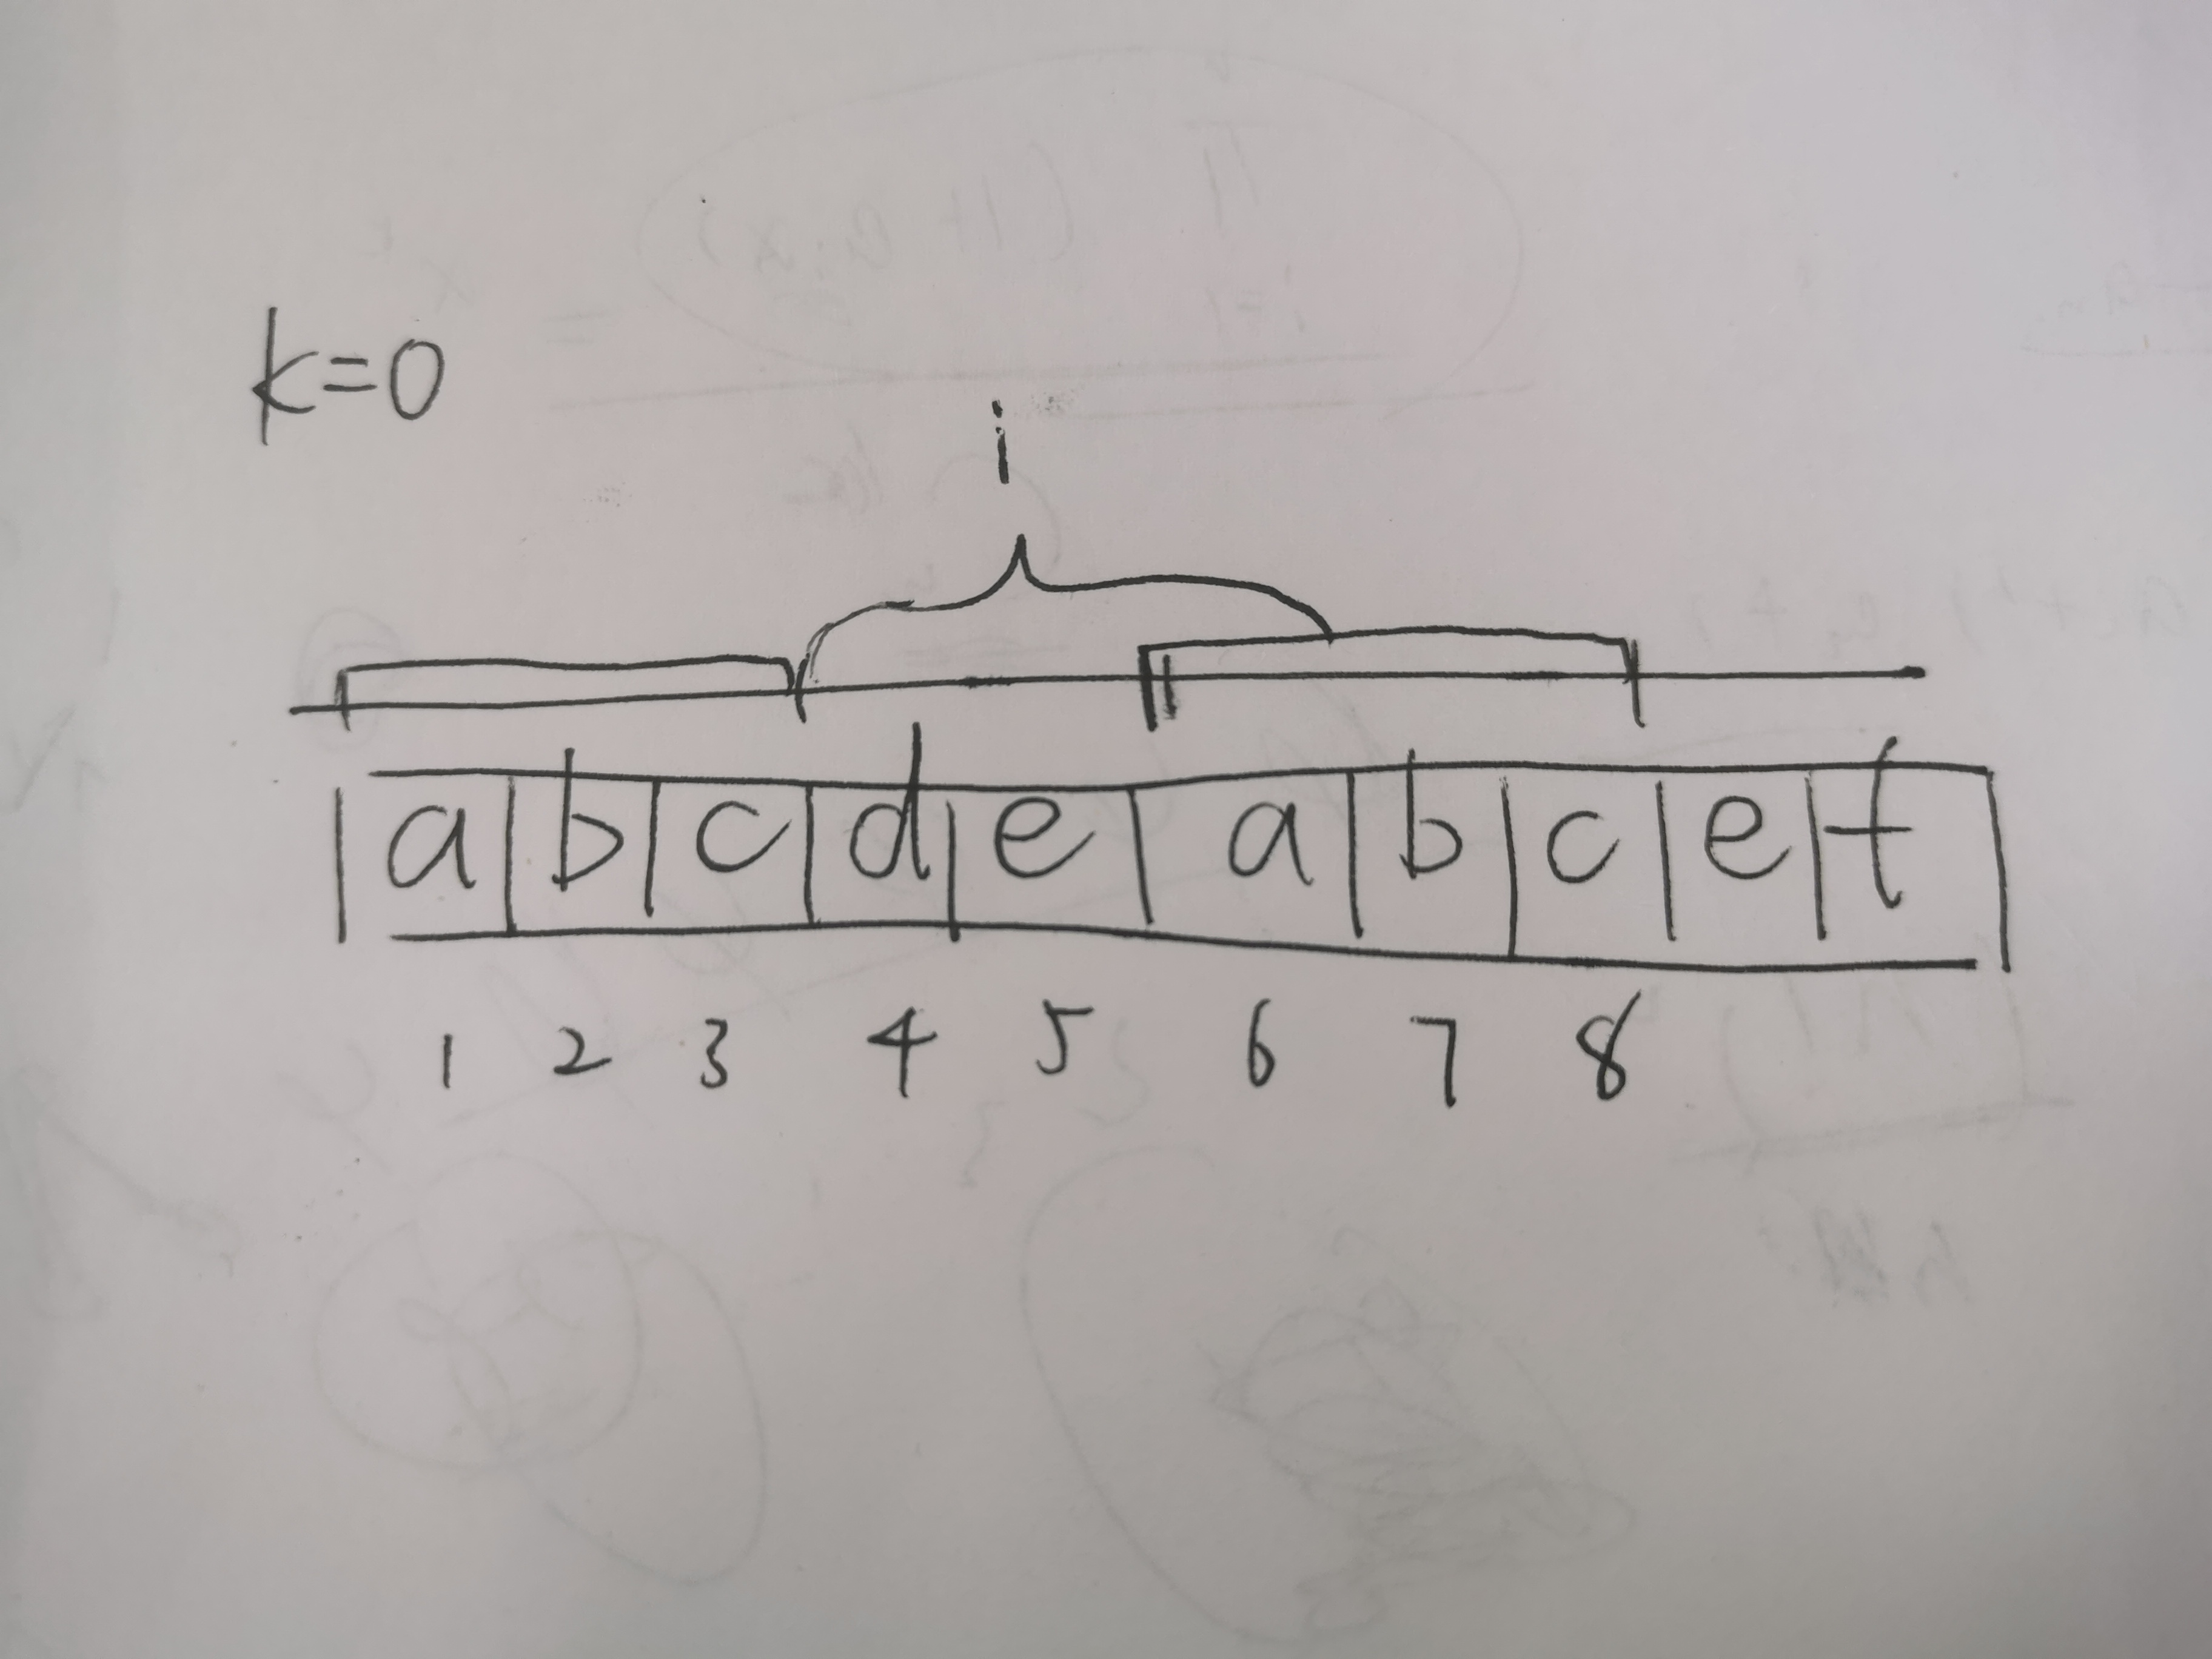 k=0
i
a b c d e a b c e t
1 2 3 4 5 6 7 8